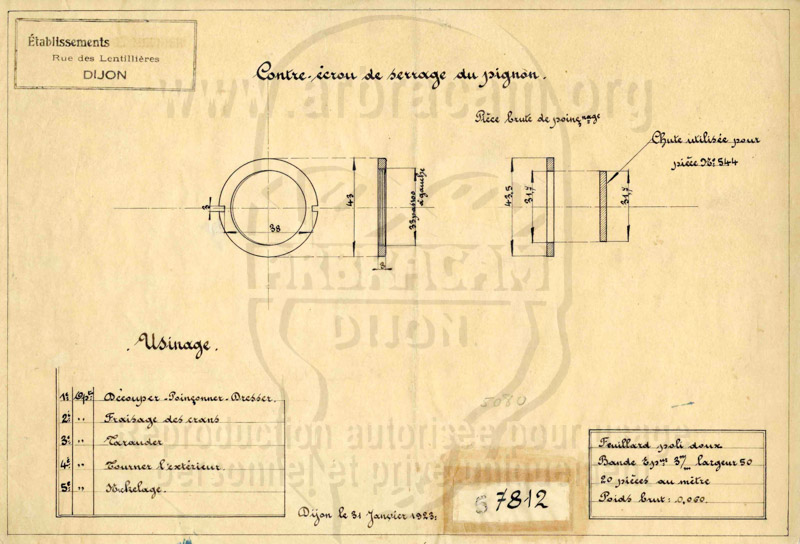 Établissements
Rue des Lentillières
DIJON
www.arbracam.org
Contre-écrou de serrage du pignon.
Pièce brute de poinçonnage
Chute utilisée pour
pièce N° 544
3
38
43
33 passo
à gauche
3
43,5
31,7
31,7
ARBRACAM
DIJON
Usinage.
1e Opon Découper-Poinçonner-Dresser.
2e " Fraisage des crans
3e " Tarauder
4e " Tourner l'extérieur.
5e " Nickelage.
5080
reproduction autorisée pour usage
personnel et
Feuillard poli doux
Bande Epeur 3m/m largeur 50
20 pièces au mètre
Poids brut: 0,060.
Dijon le 31 Janvier 1923:
7812